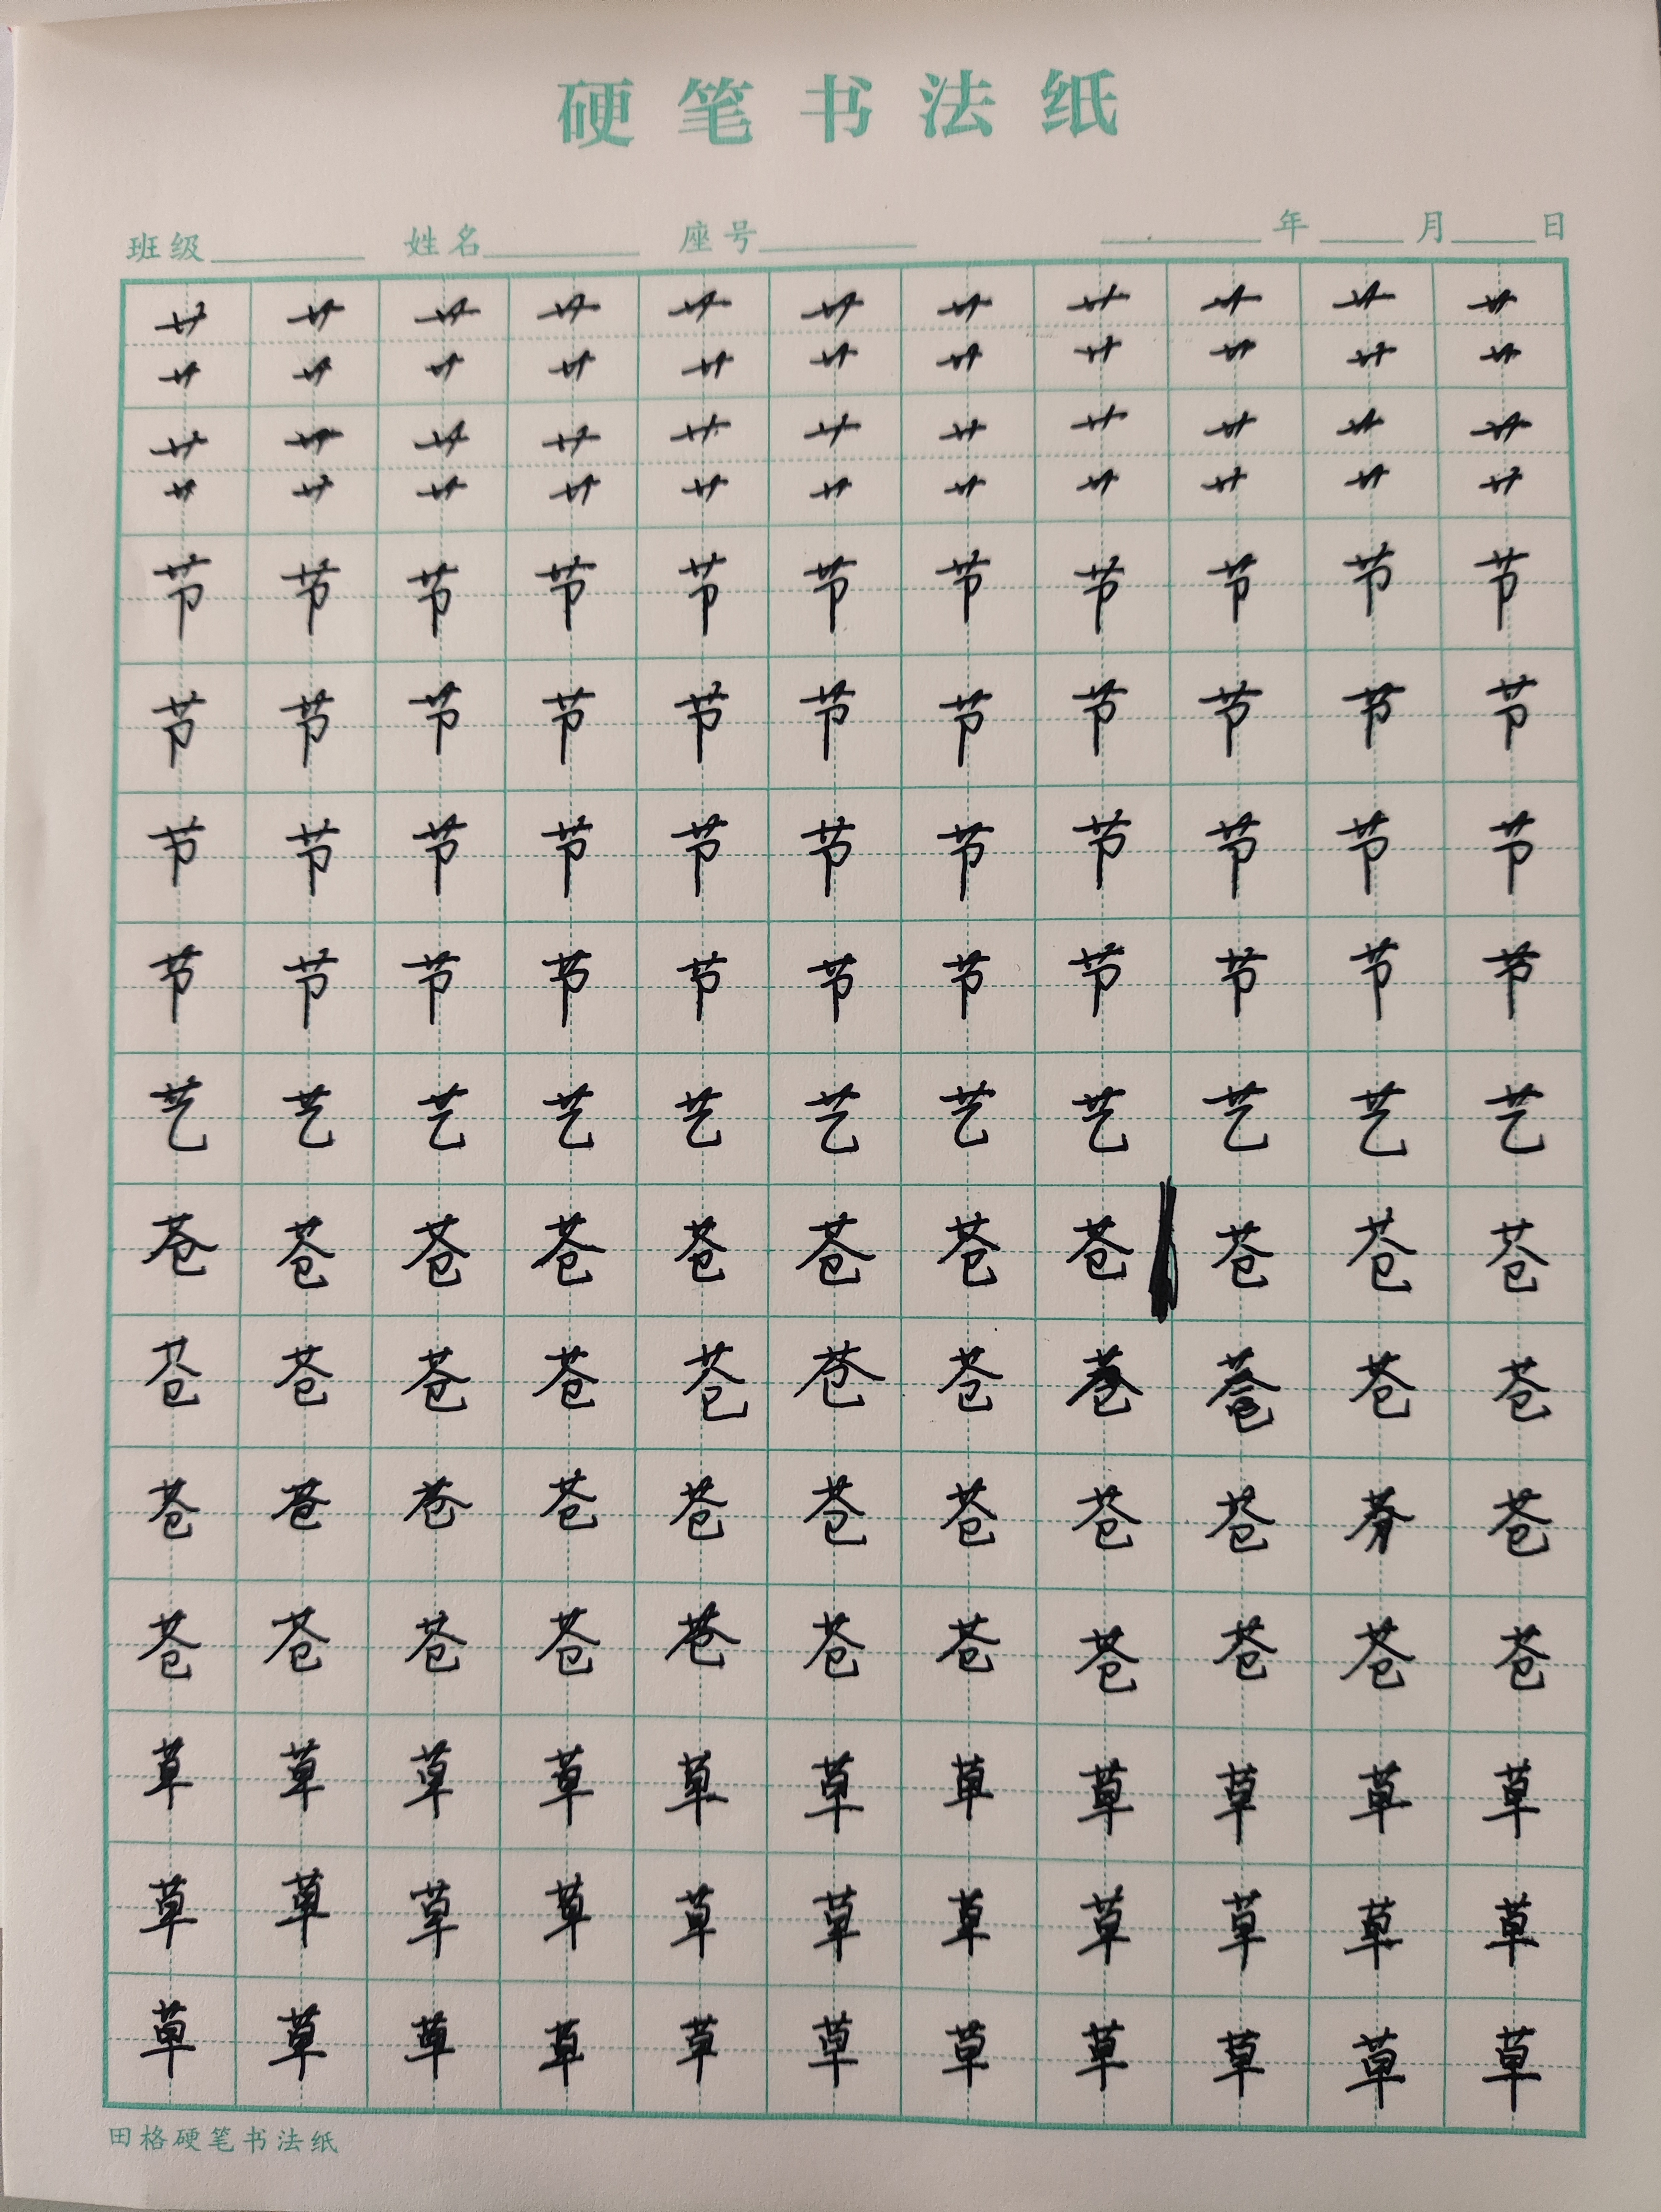 硬笔书法纸
班级 姓名 座号 年 月 日
艹 艹 艹 艹 艹 艹 艹 艹 艹 艹 艹
艹 艹 艹 艹 艹 艹 艹 艹 艹 艹 艹
艹 艹 艹 艹 艹 艹 艹 艹 艹 艹 艹
艹 艹 艹 艹 艹 艹 艹 艹 艹 艹 艹
节 节 节 节 节 节 节 节 节 节 节
节 节 节 节 节 节 节 节 节 节 节
节 节 节 节 节 节 节 节 节 节 节
节 节 节 节 节 节 节 节 节 节 节
艺 艺 艺 艺 艺 艺 艺 艺 艺 艺 艺
苍 苍 苍 苍 苍 苍 苍 苍 苍 苍 苍
苍 苍 苍 苍 苍 苍 苍 苍 苍 苍
苍 苍 苍 苍 苍 苍 苍 苍 苍 苍
苍 苍 苍 苍 苍 苍 苍 苍 苍 苍 苍
草 草 草 草 草 草 草 草 草 草 草
草 草 草 草 草 草 草 草 草 草 草
草 草 草 草 草 草 草 草 草 草 草
田格硬笔书法纸